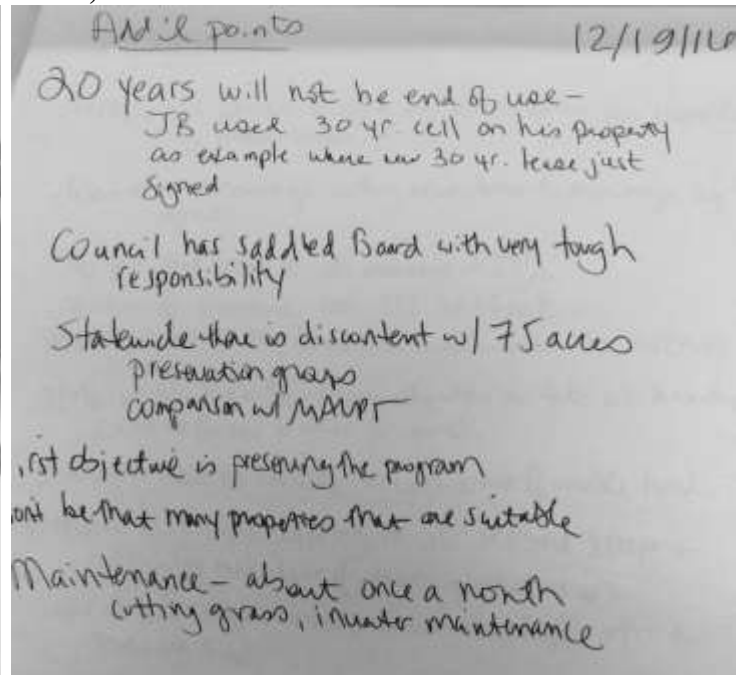 Add'l points
12/19/16
20 years will not be end of use -
JB used 30 yr. cell on his property
as example where new 30 yr. lease just
signed
Council has saddled Board with very tough
responsibility
Statewide there is discontent w/ 75 acres
preservation groups
comparison w/ MALPF
irst objective is preserving the program
ont be that many properties that are suitable
Maintenance - about once a month
cutting grass, inverter maintenance